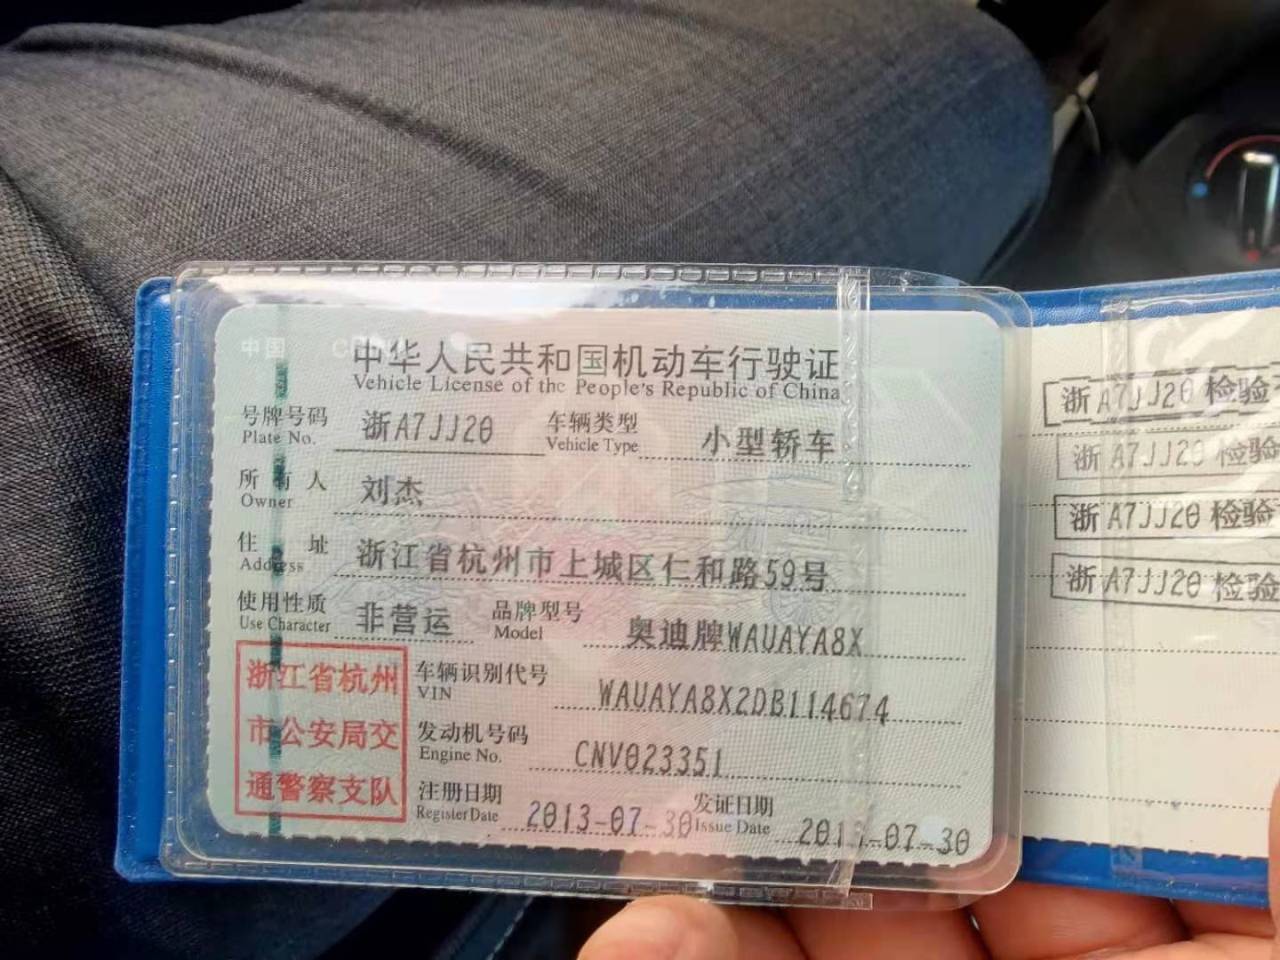 中国
中华人民共和国机动车行驶证
Vehicle License of the People's Republic of China
号牌号码 浙A7JJ20 车辆类型 小型轿车
Plate No. Vehicle Type
所有人 刘杰
Owner
住址 浙江省杭州市上城区仁和路59号
Address
使用性质 非营运 品牌型号 奥迪牌WAUAYA8X
Use Character Model
浙江省杭州
市公安局交
通警察支队
车辆识别代号 WAUAYA8X2DB114674
VIN
发动机号码 CNV023351
Engine No.
注册日期 2013-07-30 发证日期 2013-07-30
Register Date Issue Date
浙A7JJ20 检验
浙A7JJ20 检验
浙A7JJ20 检验
浙A7JJ20 检验